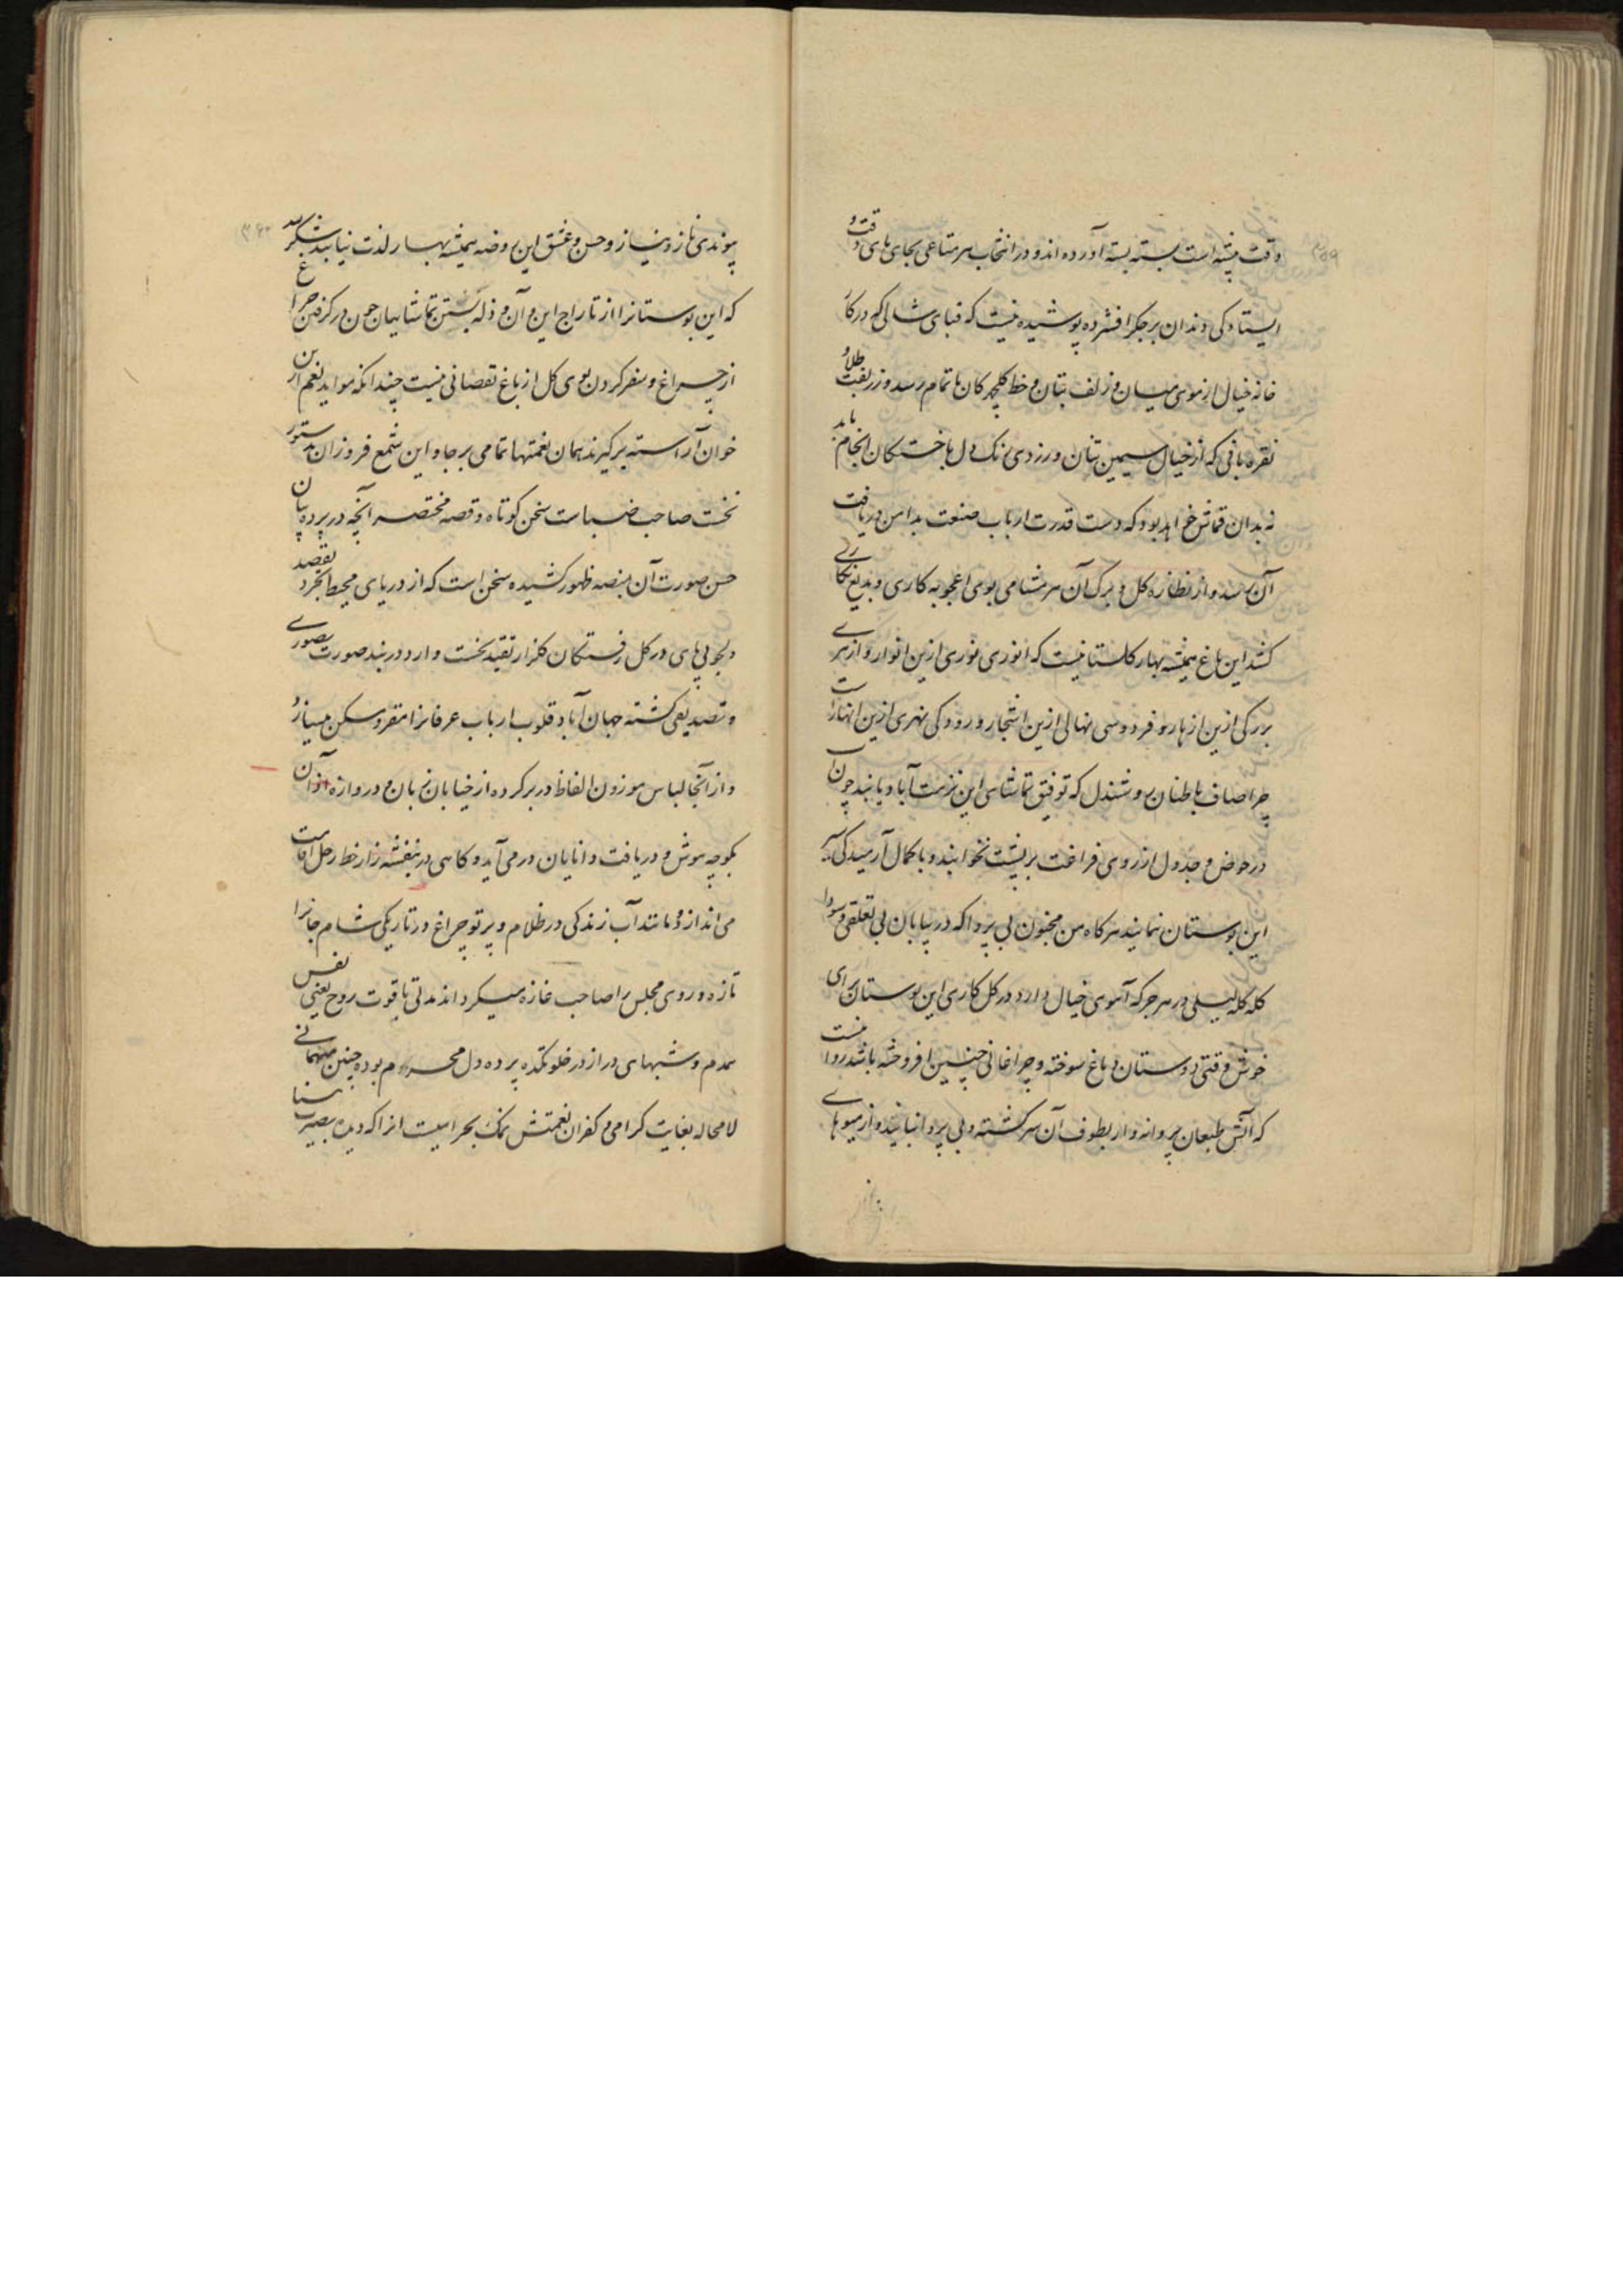 ۳۵۹
وقت پیشه است بسته بسته آورده اند و در انتخاب هر متاعی بجای پای وقت و
ایستادگی دندان بر جگر افشرده پوشیده نیست که قبای شالی که در کار
خانه خیال از موی میان و زلف بتان و خط گلچهرگان باتمام رسد و زربفت طلا و
نقره بافی که از خیال سیمین تنان و زردی رنگ دل باختگان انجام یابد
نه بدان قماش خواهد بود که دست قدرت ارباب صنعت بدامن دریافت
آن رسد و از نظاره گل و برگ آن هر مشامی بوی اعجوبه کاری و بدیع نگاری
کشد این باغ همیشه بهار گلستانیست که انوری نوری ازین انوار و ازهری
برگی ازین ازهار و فردوسی نهالی ازین اشجار و رودکی نهری ازین انهار است
چرا صاف باطنان روشندل که توفیق تماشای این نزهت آباد یابند چون آب
در حوض و جدول از روی فراغت بر پشت نخوابند و با کمال آرمیدگی سیر
این بوستان ننمایند هرگاه من مجنون بی پروا که در بیابان بی تعلقی و سودا
گله گله لیلی در هر جرگه آهوی خیال دارد در گل کاری این بوستان برای
خوش وقتی دوستان دماغ سوخته و چراغانی چنین افروخته باشد روا نیست
که آتش طبعان پروانه وار بطوف آن سرگشته و بی پروا نیایند و از میوهای
پیوندی ناز و نیاز و حسن و عشق این روضه همیشه بهار لذت نیابند شکر لله
که این بوستانرا از تاراج این و آن و ذله بستن تماشاییان چون در گرفتن چراغ
از چراغ و سفر کردن بوی گل از باغ نقصانی نیست چندانکه مواید نعم ازین
خوان آراسته برگیرند همان نعمتها تمامی برجا و این شمع فروزان بدستور
نخست صاحب ضیاست سخن کوتاه و قصه مختصر آنچه در پرده بیان
حسن صورت آن بمنصه ظهور کشیده سخن است که از دریای محیط تجرد بقصد
دلجویی پای در گل رفتگان گلزار تقید نخست وارد دربند صورت تصوری
و تصدیقی گشته جهان آباد قلوب ارباب عرفانرا مقر و مسکن میسازد
و از آنجا لباس موزون الفاظ در بر کرده از خیابان زبان و دروازه آذان
بکوچه هوش و دریافت دانایان در می آید و گاهی در بنفشه زار خط رحل اقامت
می اندازد و مانند آب زندگی در ظلام و پرتو چراغ در تاریکی شام جانرا
تازه و روی مجلس را صاحب غازه میگرداند مدتی با قوت روح یعنی نفس
همدم و شبهای دراز در خلوتکده پرده دل محرم بوده چنین مهمانی
لامحاله بغایت گرامی و کفران نعمتش نمک بحرامیست انرا که دیده بصیرت